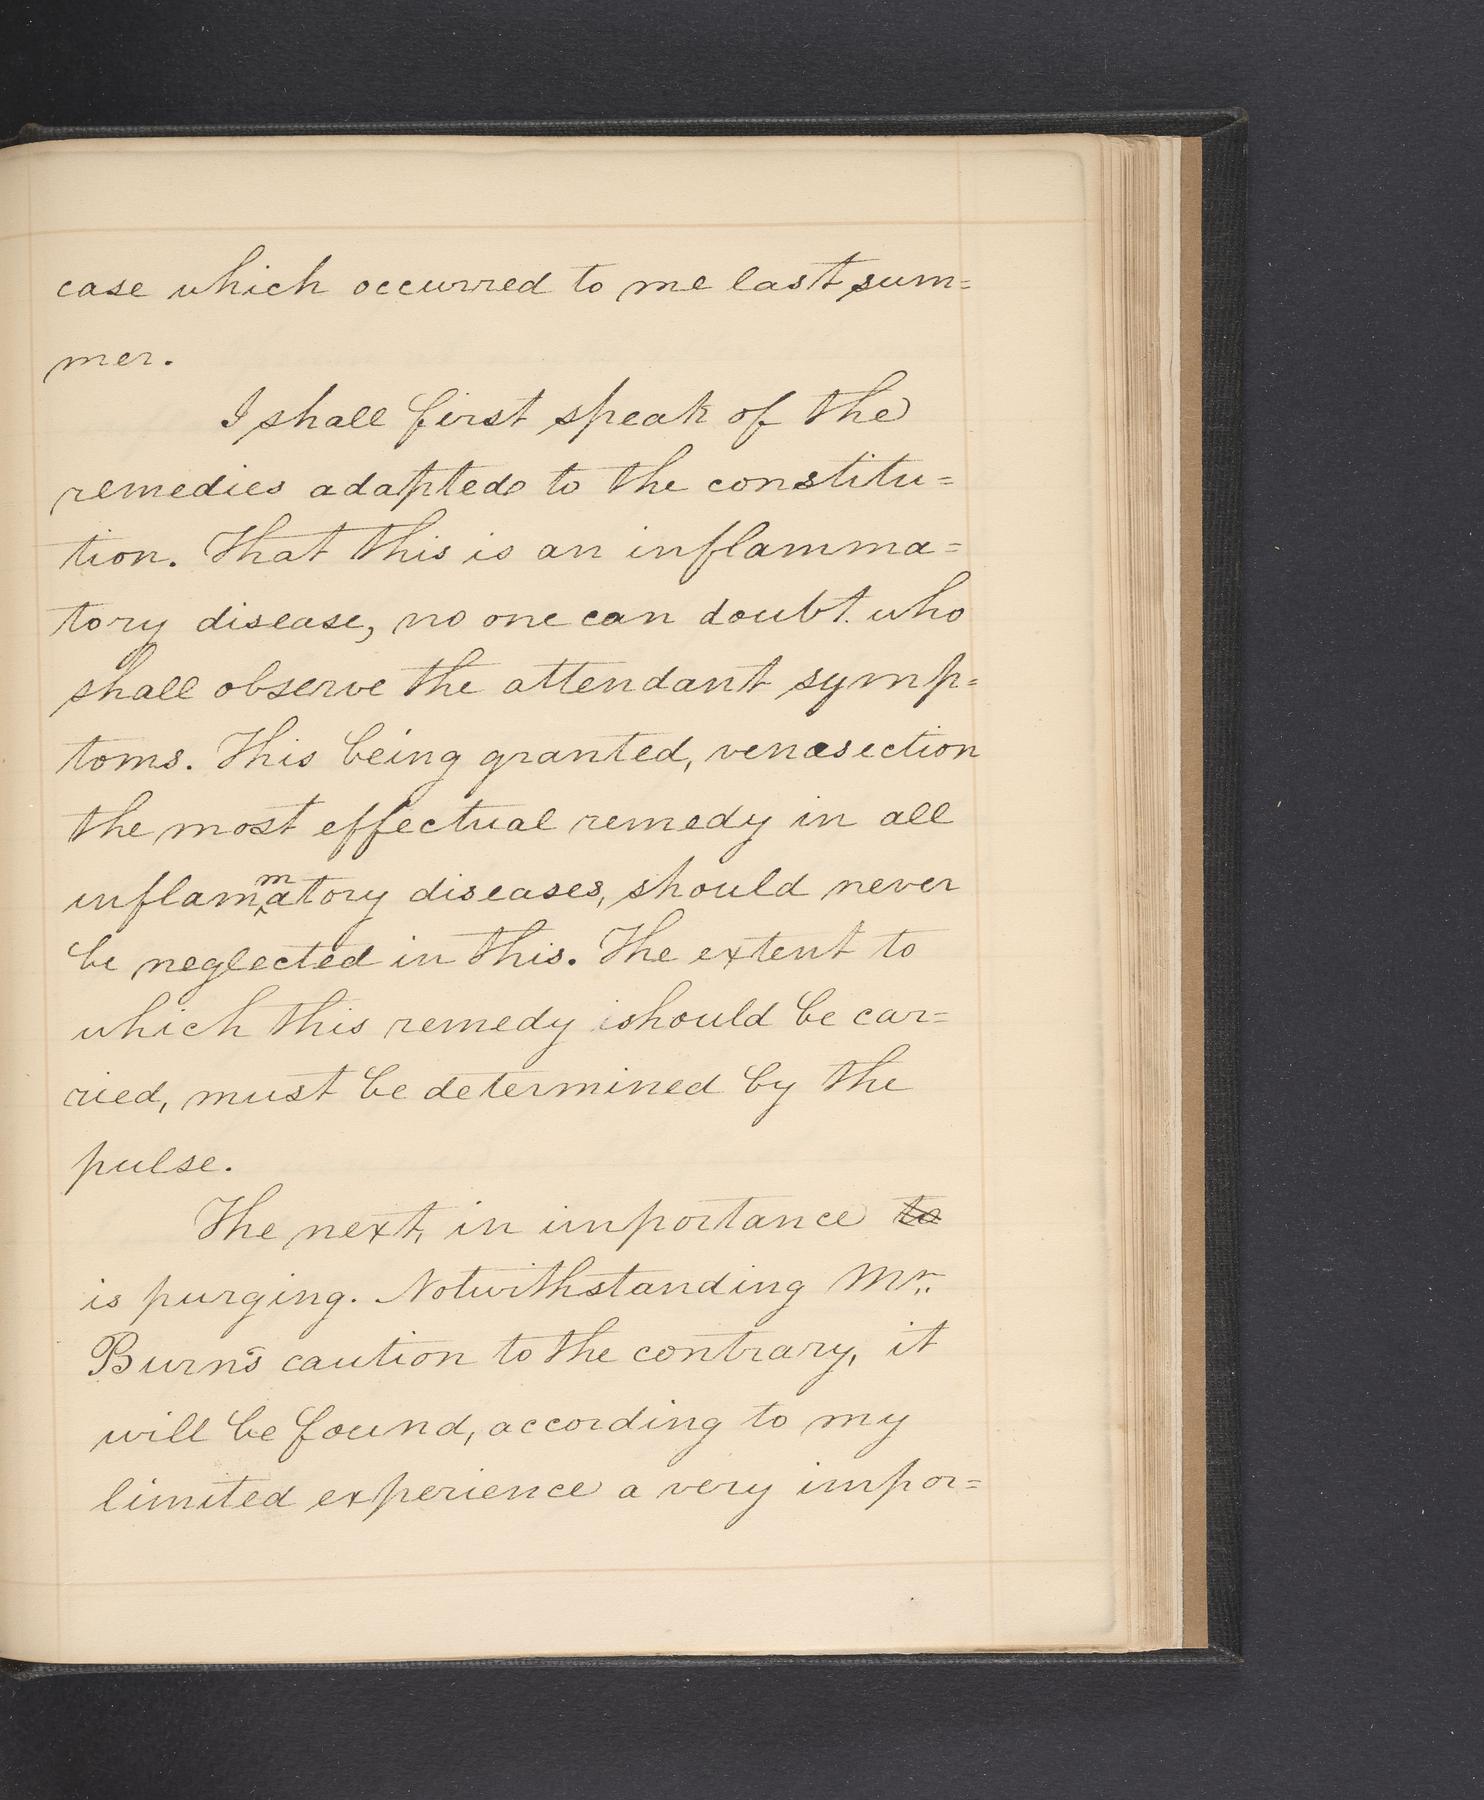 case which occurred to me last sum=
mer.
I shall first speak of the
remedies adapted to the constitu=
tion. That this is an inflamma=
tory disease, no one can doubt. who
shall observe the attendant symp=
toms. This being granted, venesection
the most effectual remedy in all
inflammatory diseases, should never
be neglected in this. The extent to
which this remedy should be car=
ried, must be determined by the
pulse.
The next, in importance to
is purging. Notwithstanding Mr.
Burn's caution to the contrary, it
will be found, according to my
limited experience a very impor=